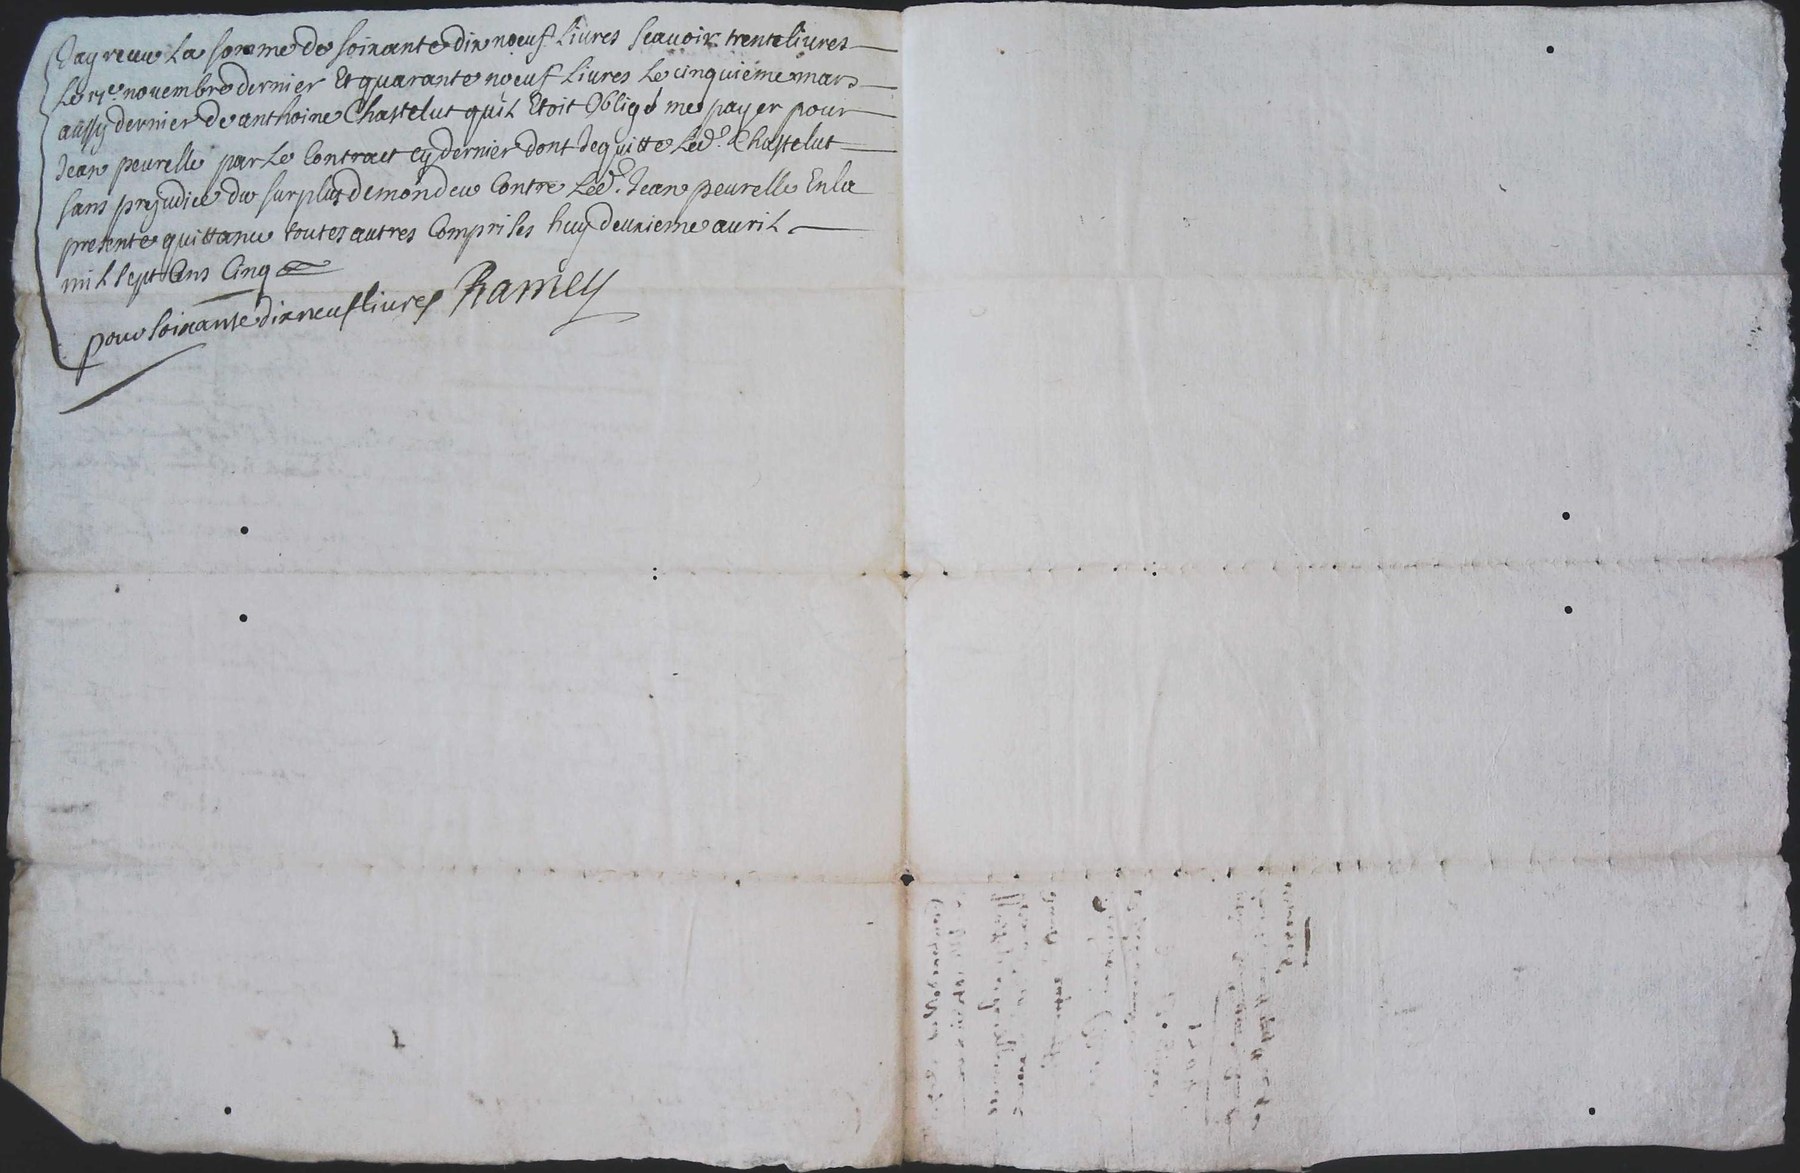 Jay receu La somme de soixante dix noeuf Livres Scavoir trente livres
Le 17e novembre dernier Et quarante noeuf Livres Le cinquiéme mars
aussy dernier de anthoine Chastelut qu'il Etoit Obligé me payer pour
Jean peurelle par Le Contract cy dernier dont Je quitte Led. Chastelut
sans prejudice du surplus de mon deu Contre Led. Jean peurelle En la
presente quittance toutes autres Comprises huy deuxieme avril
mil sept Cens Cinq
pour soixante dix neuf livres Ramey